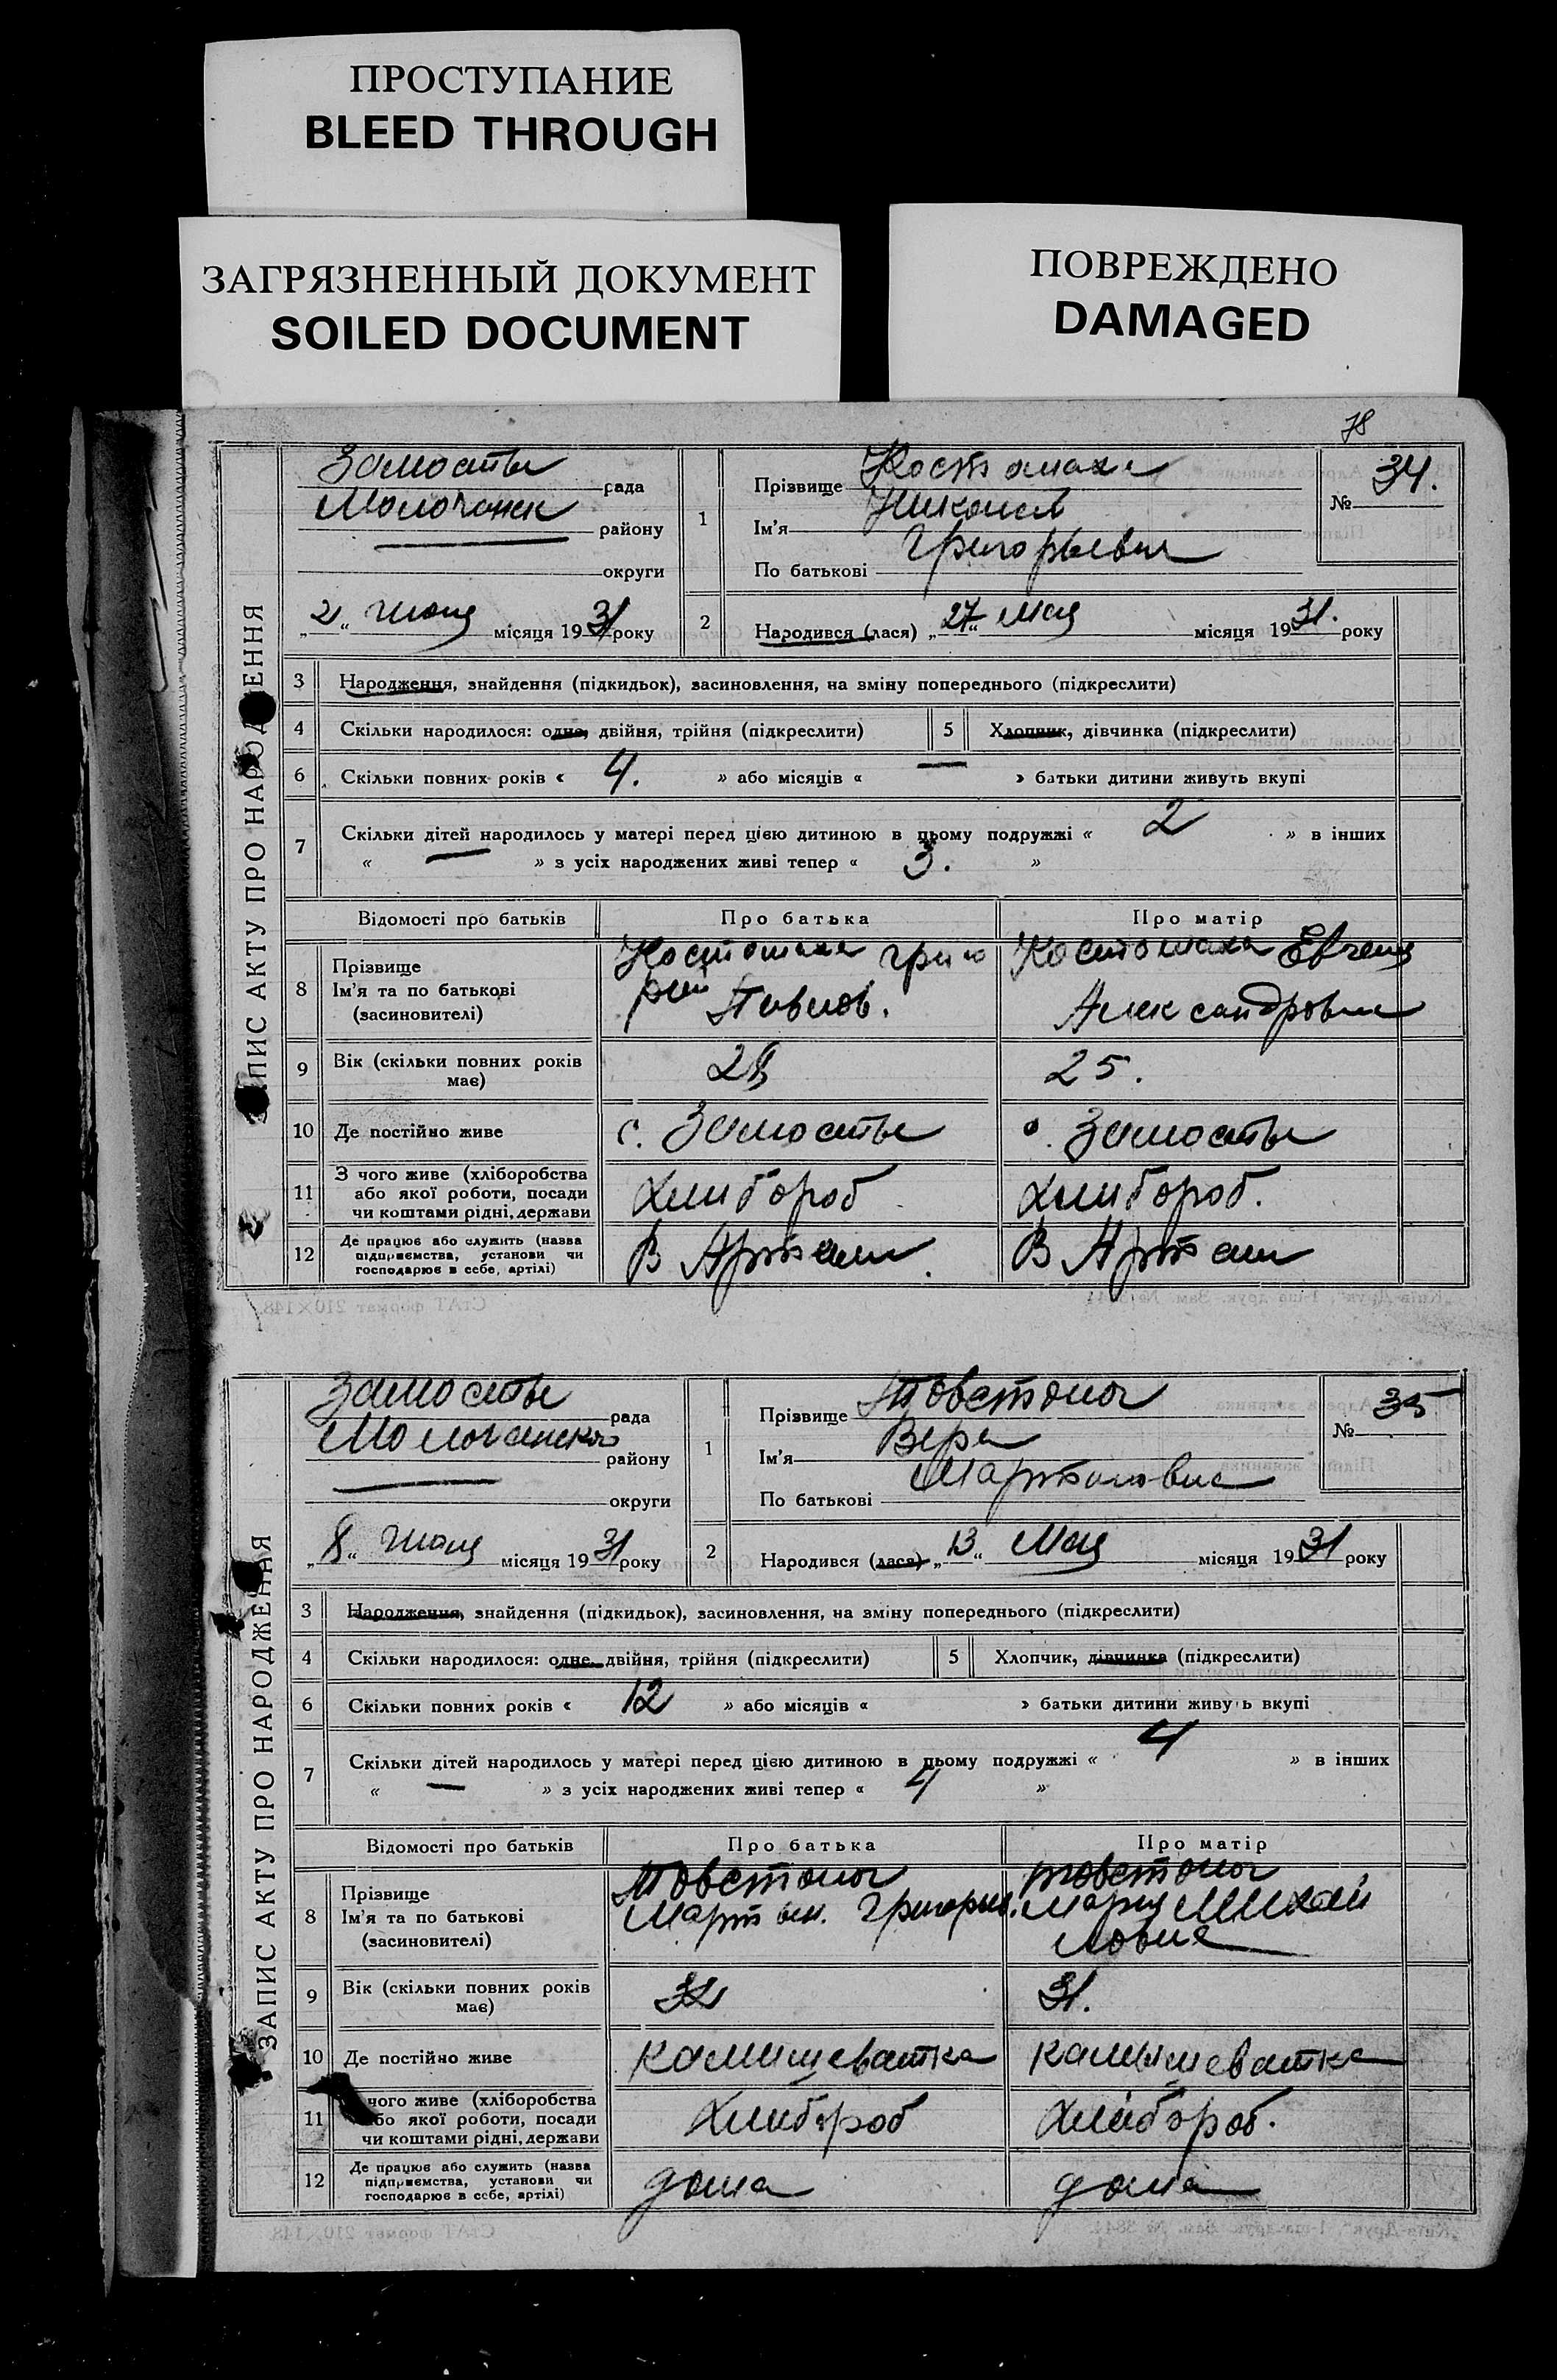 ПРОСТУПАНИЕ
BLEED THROUGH
ЗАГРЯЗНЕННЫЙ ДОКУМЕНТ
SOILED DOCUMENT
ПОВРЕЖДЕНО
DAMAGED
78
ПИС АКТУ ПРО НАРОД ЕННЯ
Замостье рада
Молочанск району
округи
„2“ Июня місяця 1931 року
1 Прізвище Костомаха
Ім'я Николай
По батькові Григорьевич
№ 34.
2 Народився (лася) „27“ Мая місяця 1931. року
3 Народження, знайдення (підкидьок), засиновлення, на зміну попереднього (підкреслити)
4 Скільки народилося: одне, двійня, трійня (підкреслити) 5 Хлопчик, дівчинка (підкреслити)
6 Скільки повних років « 4. » або місяців « — » батьки дитини живуть вкупі
7 Скільки дітей народилось у матері перед цією дитиною в цьому подружжі « 2 » в інших
« — » з усіх народжених живі тепер « 3. »
Відомості про батьків Про батька Про матір
8 Прізвище Ім'я та по батькові (засновителі) Костомаха Григо Костомаха Евгения
рий Павлов. Александровна
9 Вік (скільки повних років має) 28 25.
10 Де постійно живе с. Замостье с. Замостье
11 З чого живе (хліборобства або якої роботи, посади чи коштами рідні, держави Хлибороб Хлибороб.
12 Де працює або служить (назва підприємства, установи чи господарює в себе, артілі) В Артели. В Артели
СтАТ формат 210×148.
ЗАПИС АКТУ ПРО НАРОДЖЕННЯ
Замостье рада
Молочанского району
округи
„8“ Июня місяця 1931 року
1 Прізвище Товстоног
Ім'я Вера
По батькові Мартыновна
№ 35
2 Народився (лася) „13“ Мая місяця 1931 року
3 Народження, знайдення (підкидьок), засиновлення, на зміну попереднього (підкреслити)
4 Скільки народилося: одне, двійня, трійня (підкреслити) 5 Хлопчик, дівчинка (підкреслити)
6 Скільки повних років « 12 » або місяців « » батьки дитини живуть вкупі
7 Скільки дітей народилось у матері перед цією дитиною в цьому подружжі « 4 » в інших
« — » з усіх народжених живі тепер « 4 »
Відомості про батьків Про батька Про матір
8 Прізвище Ім'я та по батькові (засиновителі) Товстоног Товстоног
Мартын. Григорьев. Мария Михай
ловна
9 Вік (скільки повних років має) 32 31.
10 Де постійно живе Камишеватка Камышеватка
11 чого живе (хліборобства або якої роботи, посади чи коштами рідні, держави Хлибороб Хлибороб.
12 Де працює або служить (назва підприємства, установи чи господарює в себе, артілі) дома дома
СтАТ формат 210×148.